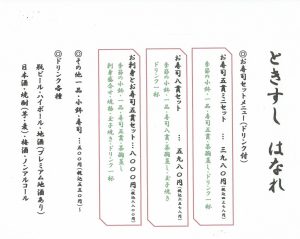 ときすし はなれ
◎お寿司セットメニュー(ドリンク付)
お寿司五貫ミニセット … 三九八〇円(税込四三七八円)
季節の小鉢・一品・お寿司五貫・茶碗蒸し・ドリンク一杯
お寿司八貫セット … 五九八〇円(税込六五七八円)
季節の小鉢・一品・お寿司八貫・茶碗蒸し・玉子焼き
ドリンク一杯
お刺身とお寿司五貫セット…八〇〇〇円(税込八八〇〇円)
季節の小鉢・一品・お寿司五貫・茶碗蒸し
刺身盛合せ・焼物・玉子焼き・ドリンク一杯
◎その他一品・小鉢・お寿司…五〇〇円(税込五五〇円)~
◎ドリンク各種
瓶ビール・ハイボール・地酒(プレミアム地酒あり)
日本酒・焼酎(芋・麦)・梅酒・ノンアルコール